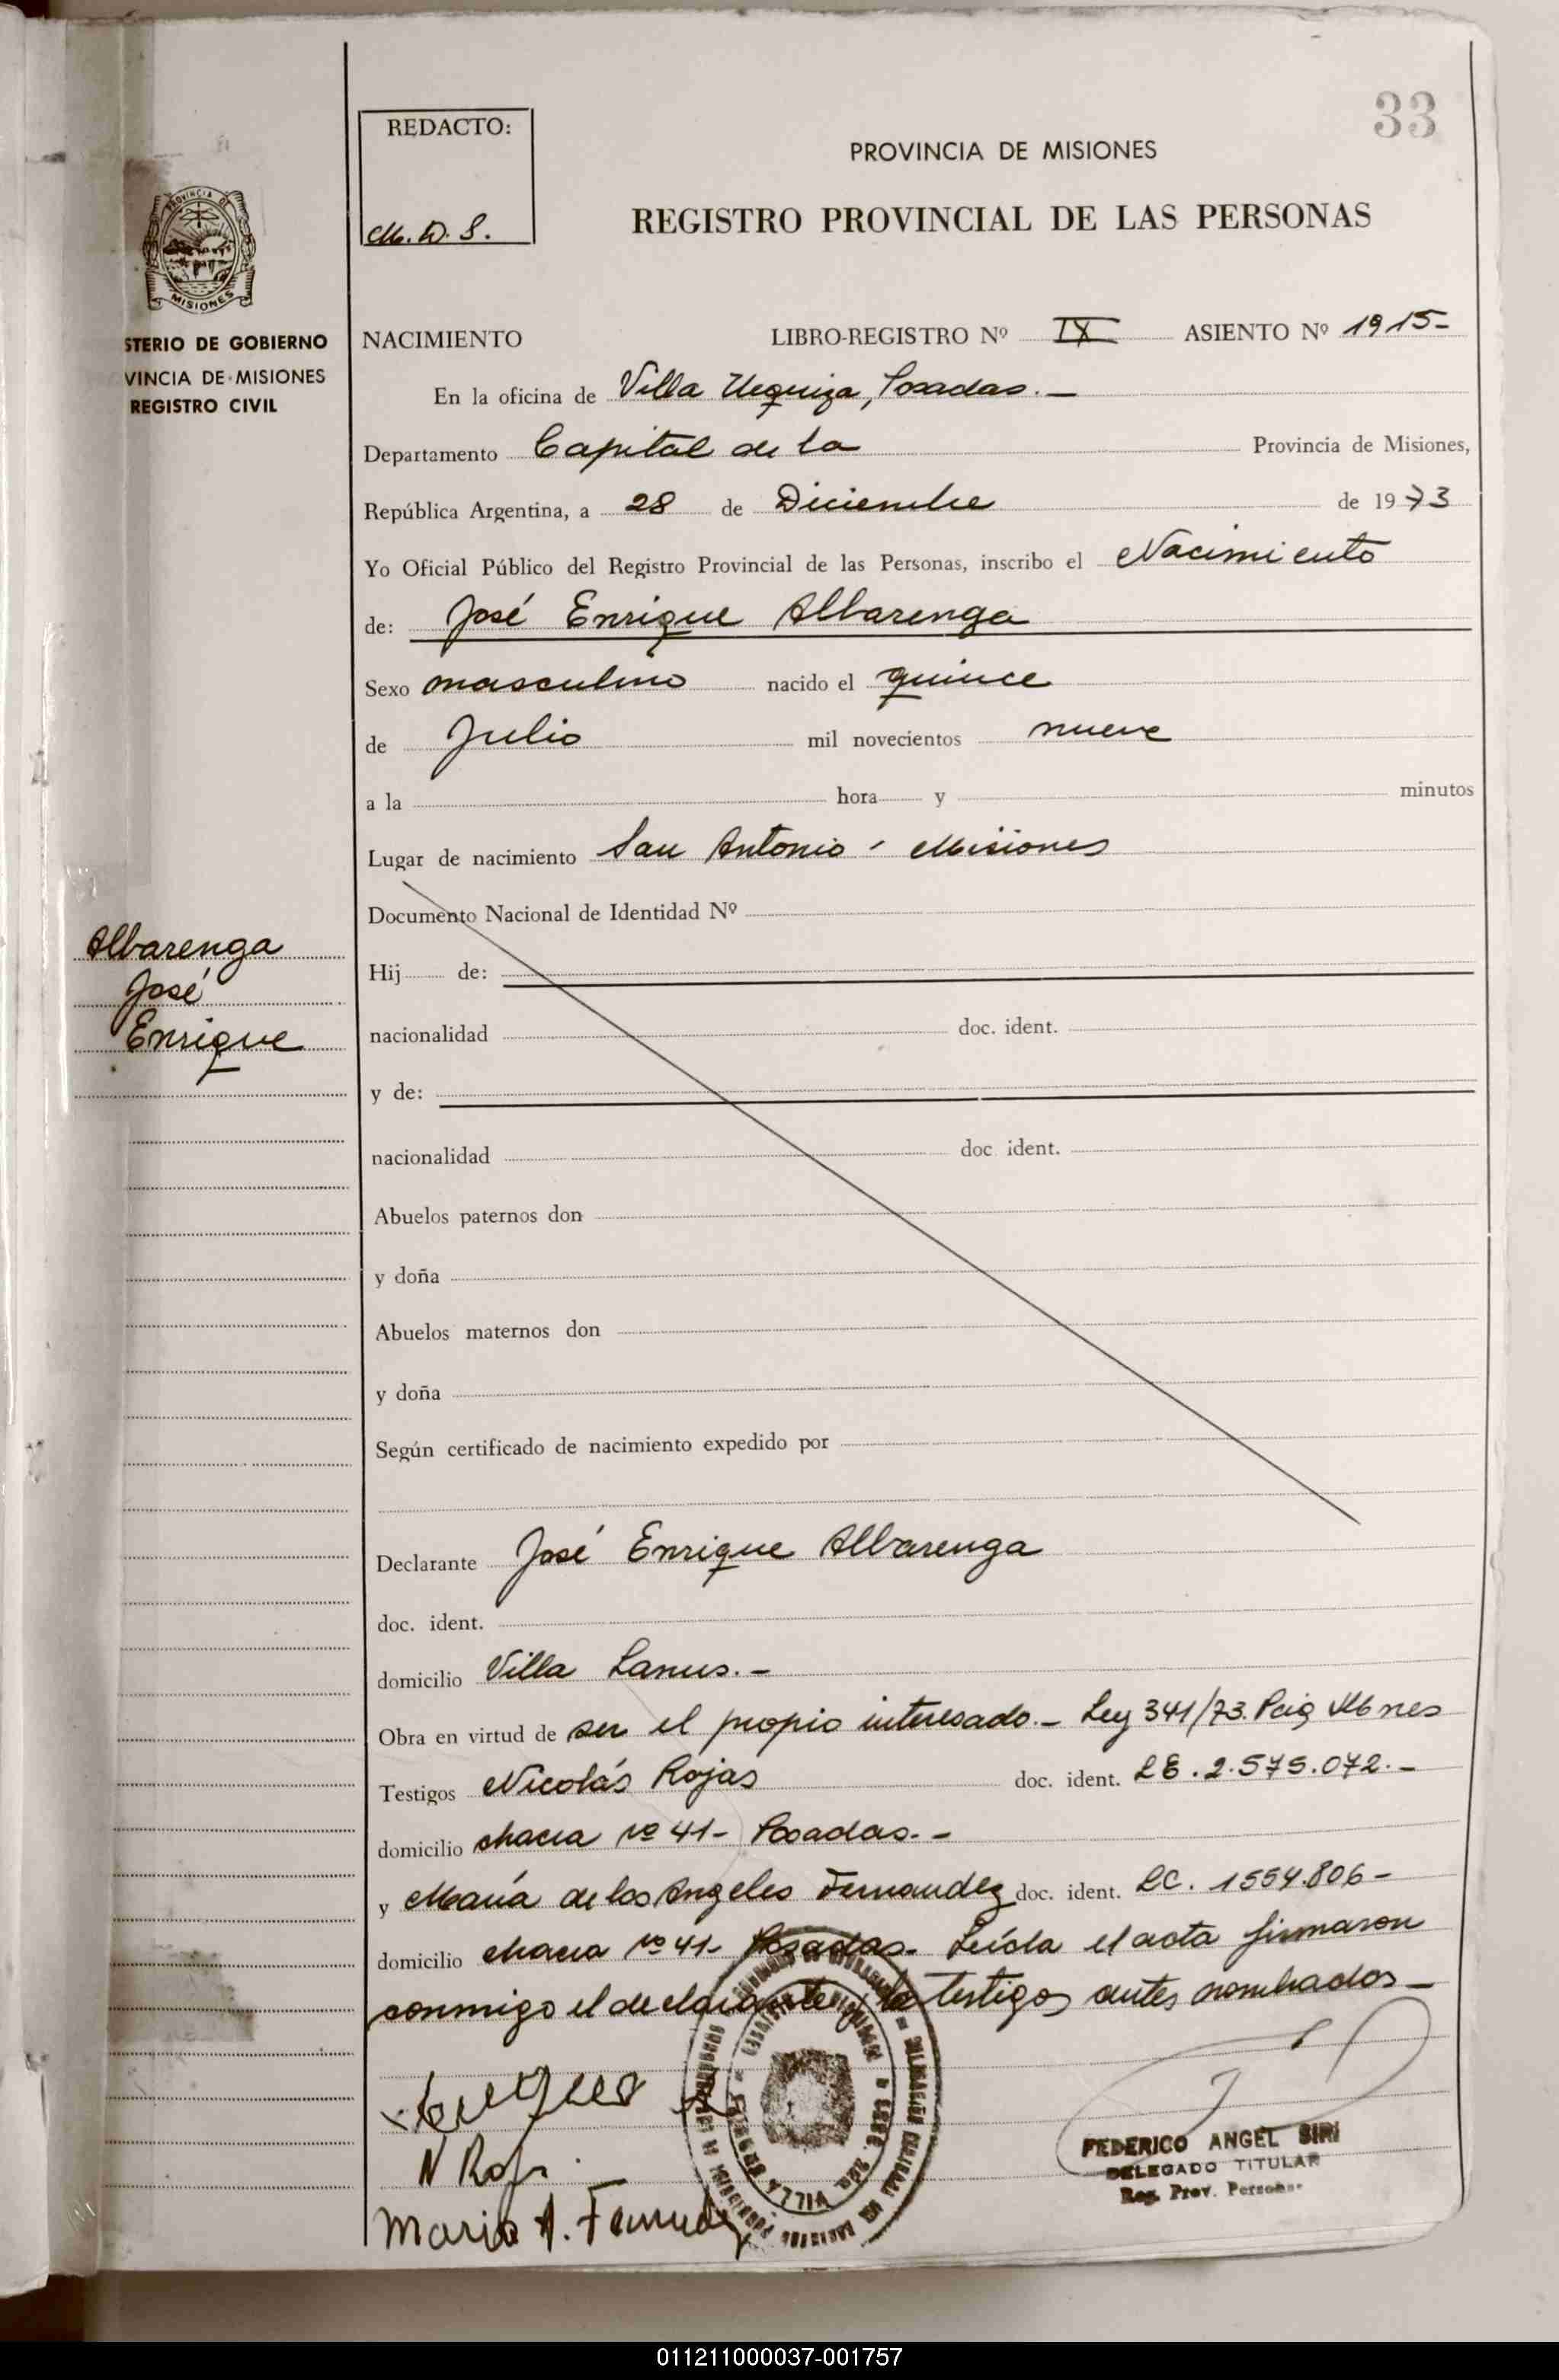 33
REDACTO:
M. D. S.
PROVINCIA DE MISIONES
REGISTRO PROVINCIAL DE LAS PERSONAS
PROVINCIA DE
MISIONES
STERIO DE GOBIERNO
VINCIA DE MISIONES
REGISTRO CIVIL
NACIMIENTO LIBRO-REGISTRO Nº IX ASIENTO Nº 1915-
En la oficina de Villa Urquiza, Posadas.-
Departamento Capital de la Provincia de Misiones,
República Argentina, a 28 de Diciembre de 1973
Yo Oficial Público del Registro Provincial de las Personas, inscribo el Nacimiento
de: José Enrique Albarenga
Sexo masculino nacido el quince
de Julio mil novecientos nueve
a la hora y minutos
Lugar de nacimiento San Antonio - Misiones
Documento Nacional de Identidad Nº
Albarenga
José
Enrique
Hij de:
nacionalidad doc. ident.
y de:
nacionalidad doc ident.
Abuelos paternos don
y doña
Abuelos maternos don
y doña
Según certificado de nacimiento expedido por
Declarante José Enrique Albarenga
doc. ident.
domicilio Villa Lanus.-
Obra en virtud de ser el propio interesado.- Ley 341/73.
Testigos Nicolás Rojas doc. ident. LE. 2.575.072.-
domicilio chacra nº 41- Posadas.-
y María de los Angeles Fernandez doc. ident. LC. 1554.806-
domicilio chacra nº 41- Posadas- Leída el acta firmaron
conmigo el declarante y los testigos antes nombrados-
N Roj
Maria A. Fernandez
VILLA URQUIZA
FEDERICO ANGEL SIRI
DELEGADO TITULAR
Reg. Prov. Personas
011211000037-001757